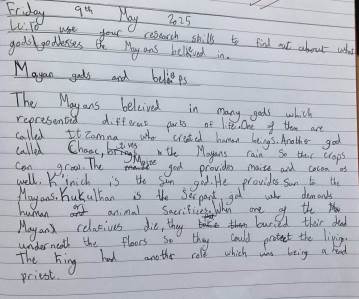 Friday 9th May 2025
L.I.To use your research skills to find out about what
gods/goddesses the Mayans believed in.
Mayan gods and beliefs
The Mayans beleived in many gods which
represented different parts of life. One of them are
called Itzamna who created human beings. Another god
called Chaac, gives the Mayans rain so their crops
can grow. The Maize god provides maize and cocoa as
well. K'inich is the sun god. He provides sun to the
Mayans. Kukulthan is the serpant god who demands
human and animal sacrifices. When one of the
Mayans relatives die, they buried their dead
underneath the floors so they could protect the living.
The King had another role which was being a head
priest.